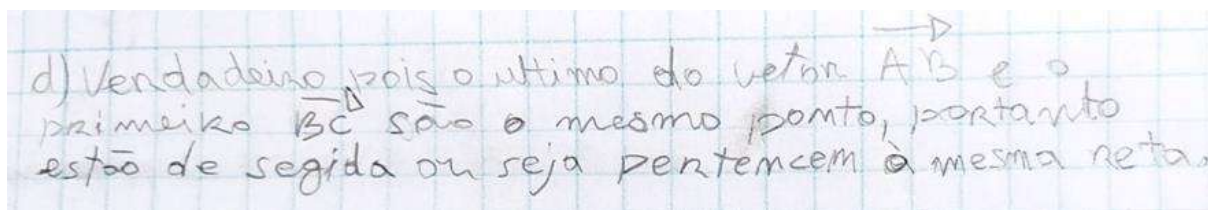 d) Verdadeiro, pois o ultimo do vetor AB e o
primeiro BC são o mesmo ponto, portanto
estão de segida ou seja pertencem à mesma reta.